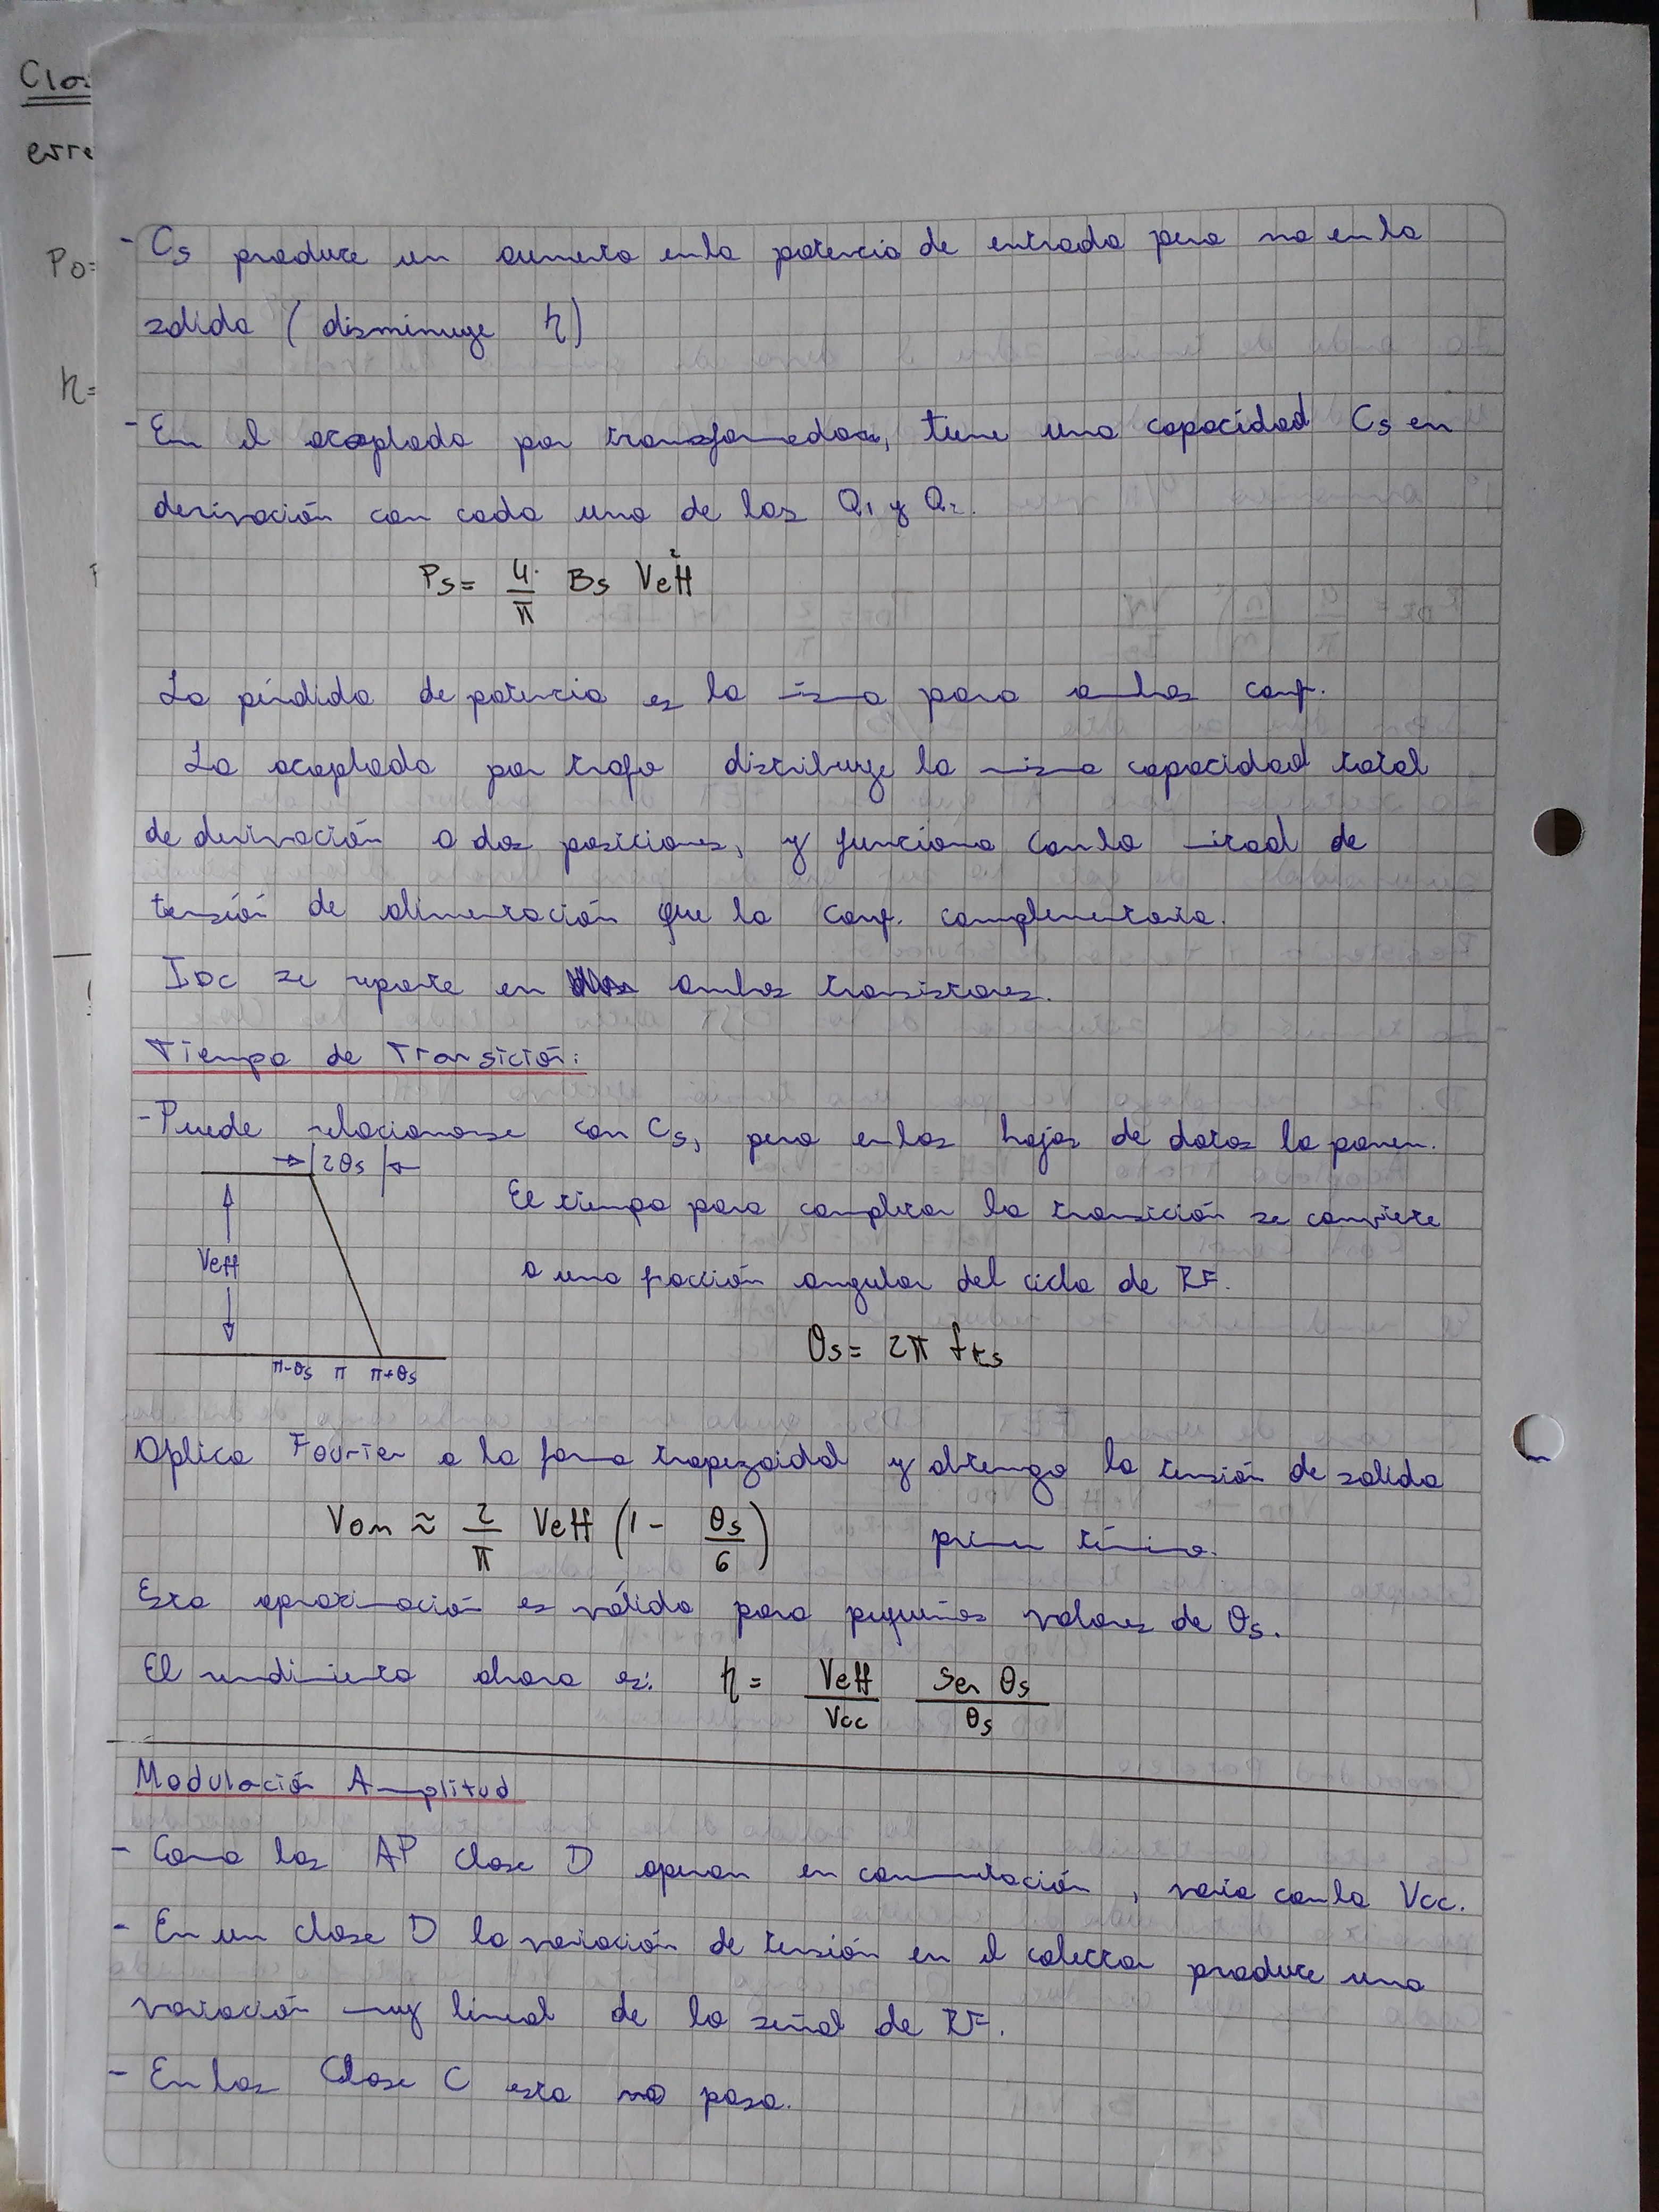 Clas
erre
Po=
η=
- Cs produce un aumento en la potencia de entrada pero no en la
salida (disminuye η)
- En el acoplado por transformador, tiene una capacidad Cs en
derivación con cada uno de los Q1 y Q2.
Ps = 4/π Bs Veff²
La pérdida de potencia es la misma para ambas conf.
La acoplada por trafo distribuye la misma capacidad total
de derivación a dos posiciones, y funciona con la mitad de
tensión de alimentación que la conf. complementaria.
IDC se reparte en ambos transistores.
Tiempo de Transición:
- Puede relacionarse con Cs, pero en las hojas de datos lo ponen.
→|2θs|←
El tiempo para completar la transición se convierte
Veff
a una fracción angular del ciclo de RF.
θs = 2π f ts
π-θs π π+θs
Aplico Fourier a la forma trapezoidal y obtengo la tensión de salida
Vom ≈ 2/π Veff (1 - θs/6) primer término.
Esta aproximación es válida para pequeños valores de θs.
El rendimiento ahora es: η = Veff/Vcc Sen θs/θs
Modulación Amplitud
- Como los AP Clase D operan en conmutación, varía con la Vcc.
- En un clase D la variación de tensión en el colector produce una
variación muy lineal de la señal de RF.
- En los Clase C esto no pasa.